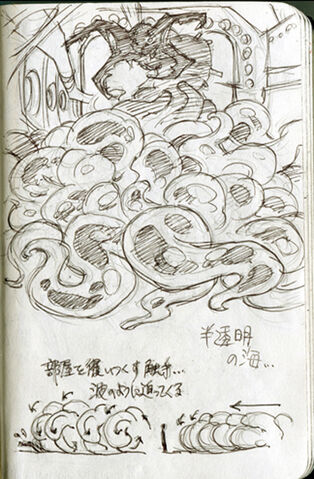 半透明
の海…
部屋を覆いつくす触手…
波のように迫ってくる